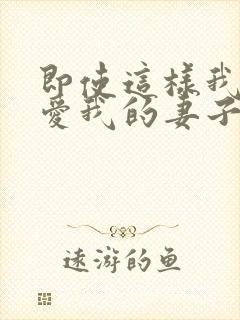 即使這樣我
愛我的妻子
遠游的鱼